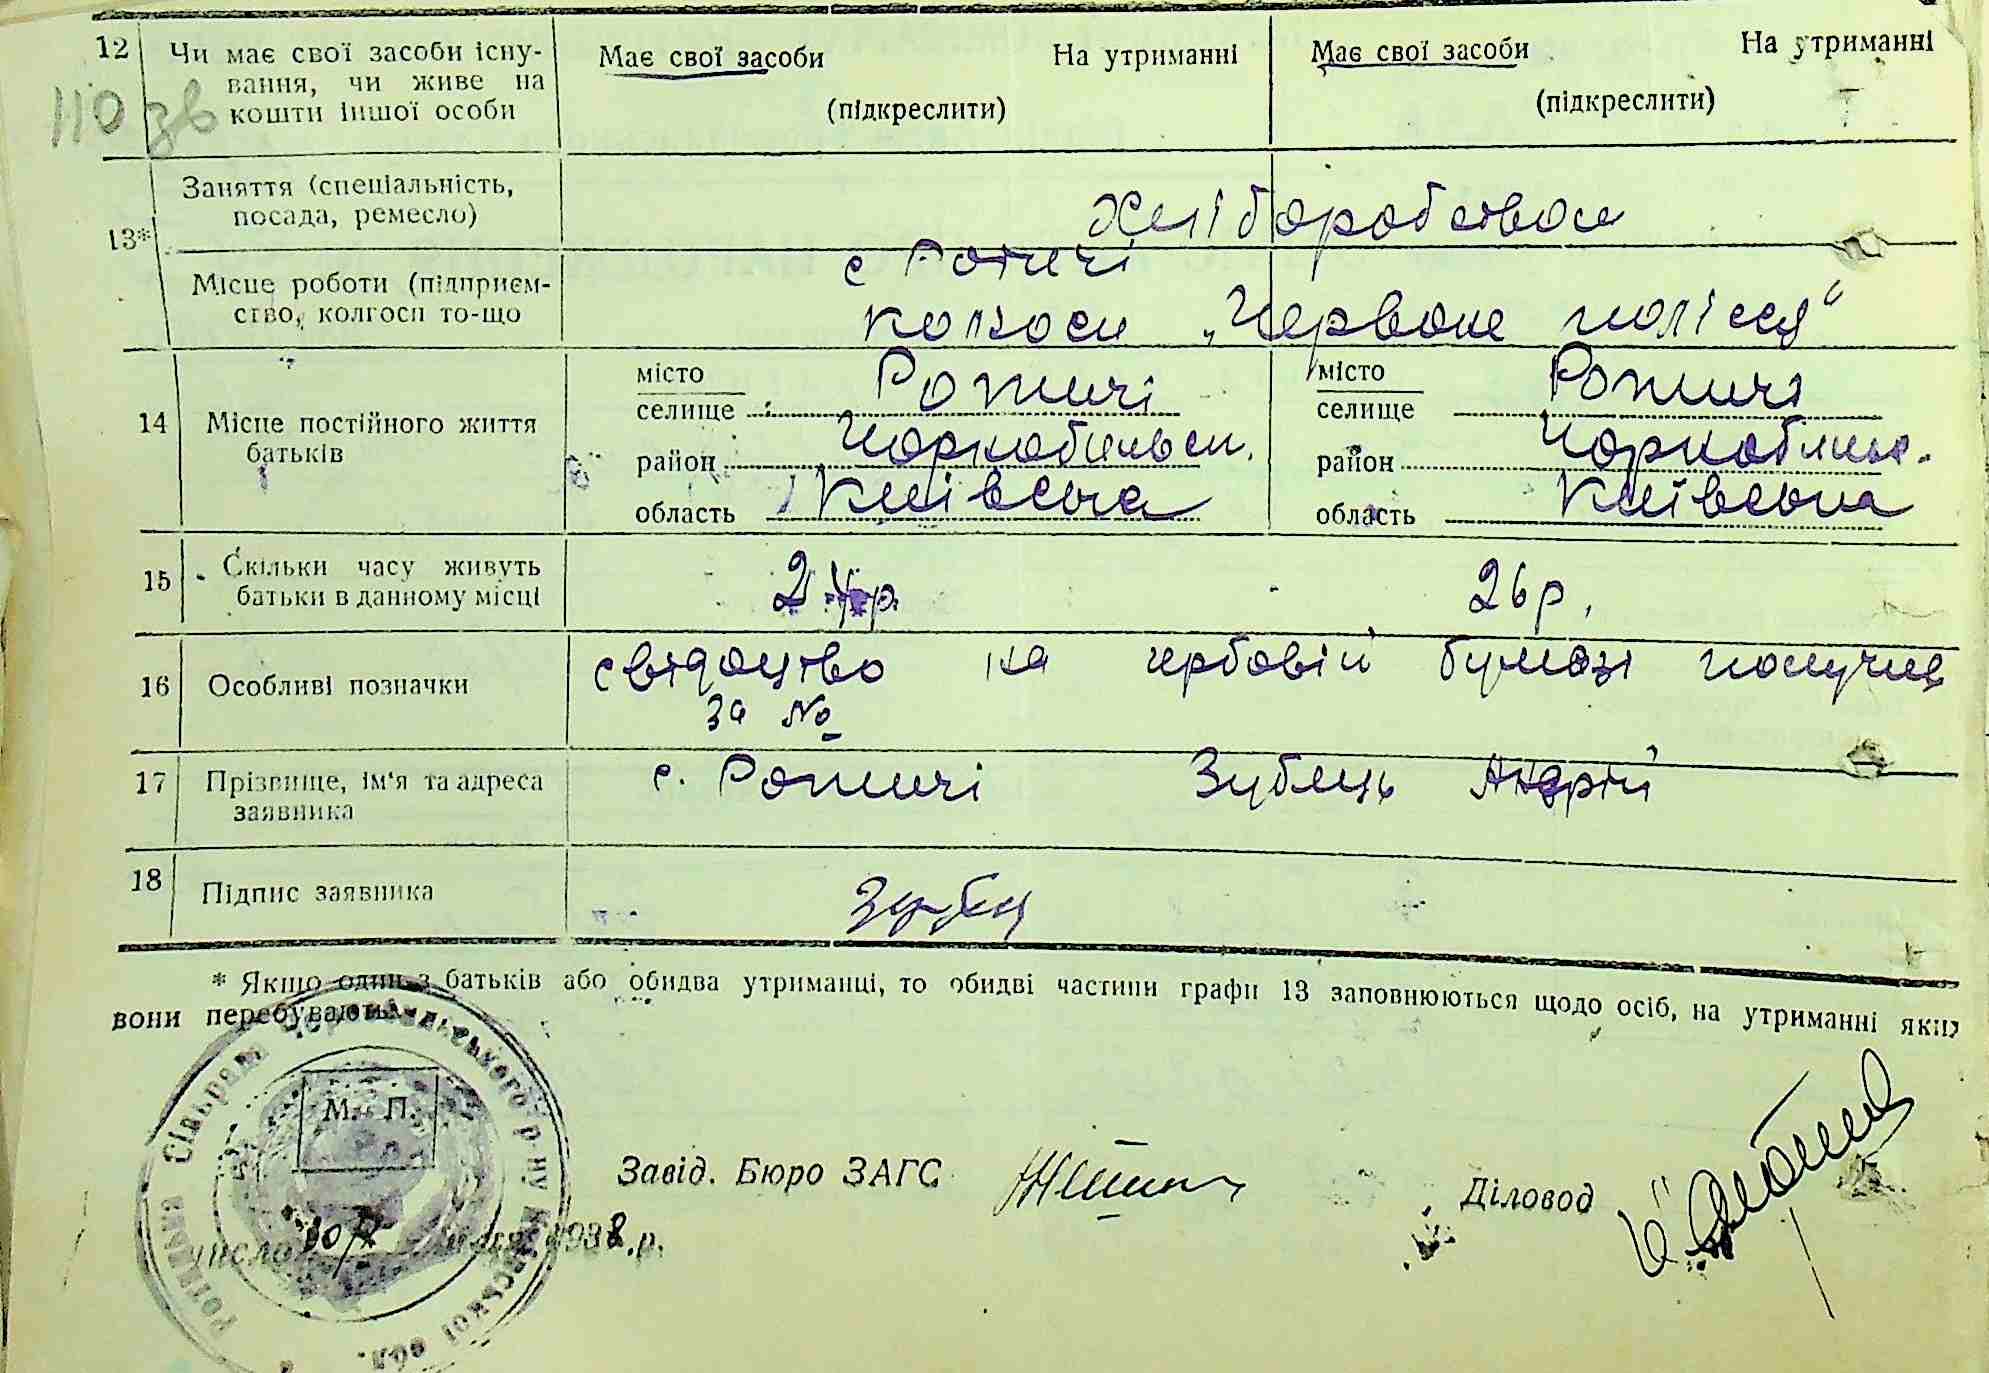 12 Чи має свої засоби існу- Має свої засоби На утриманні Має свої засоби На утриманні
вання, чи живе на
кошти іншої особи (підкреслити) (підкреслити)
110 зв
13* Заняття (спеціальність,
посада, ремесло) Хліборобством
с Ротичі
Місце роботи (підприєм-
ство, колгосп то-що колхосп „Червоне полісся“
14 Місце постійного життя
батьків
місто
селище Ротичі
район Чорнобильськ.
область Київська
місто
селище Ротичі
район
область Київська
15 Скільки часу живуть
батьки в данному місці 26 р.
16 Особливі позначки свідоцтво на гербовій бумазі получив
за №
17 Прізвище, ім'я та адреса
заявника с. Ротичі Зубець Андрій
18 Підпис заявника
* Якщо один з батьків або обидва утриманці, то обидві частини графи 13 заповнюються щодо осіб, на утриманні яких
вони перебувають.
Сільрада Чорнобильського р-ну Київської обл.
М. П.
Завід. Бюро ЗАГС Діловод
число 1938 р.